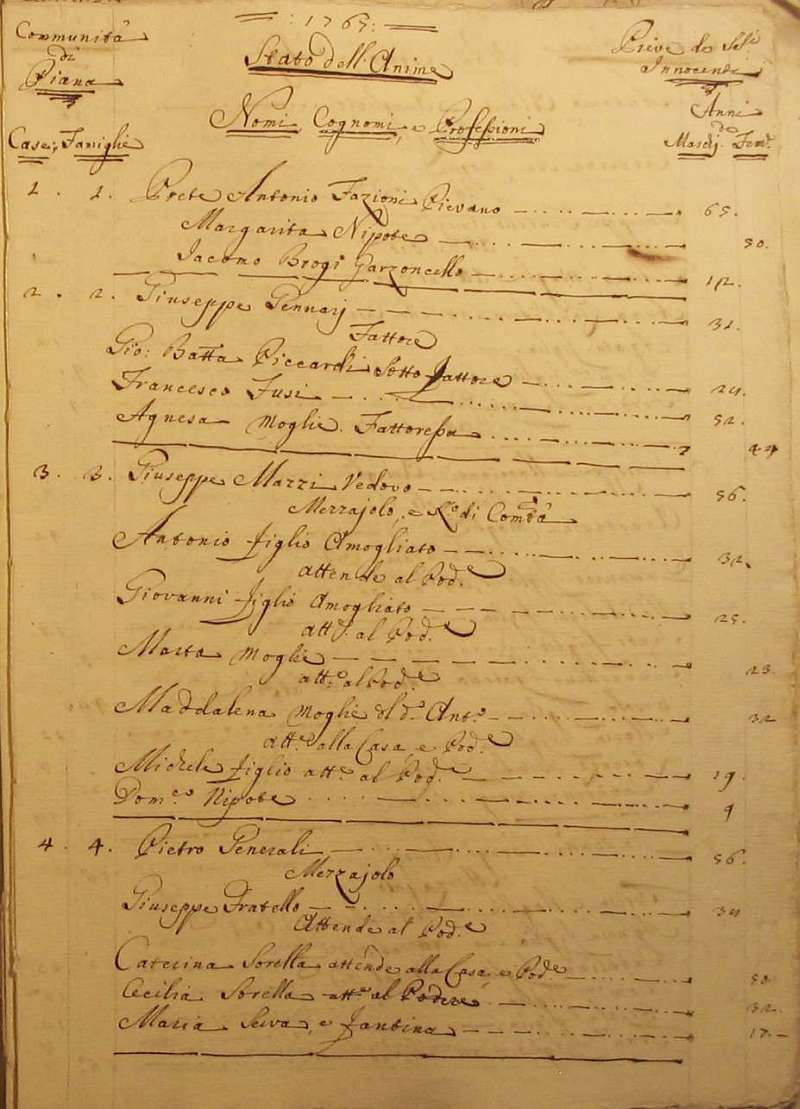 : 1765 :
Communità di Piana
Stato dell'Anime
Pieve de SS.i Innocenti
Case, Famiglie
Nomi, Cognomi, e Professioni
Anni de Maschi. Fem.
1. 1. Prete Antonio Fazioni Pievano 65.
Margarita Nipote 50.
Jacomo Brogi Garzoncello 12.
2. 2. Giuseppe Gennarj 31.
Fattore
Gio: Batta Piccardi Sotto Fattore 24.
Francesco Fusi 52.
Agnesa Moglie. Fattoressa 44
3. 3. Giuseppe Mazzi Vedovo 56.
Mezzajolo, e di Comtà
Antonio figlio Amogliato 32.
attende al Pod.e
Giovanni figlio Amogliato 25.
att.e al Pod.e
Marta Moglie 23.
att.e al Pod.e
Maddalena Moglie del d.o Ant.o 32
att.e alla Casa e Pod.e
Michele figlio att.e al Pod.e 19.
Dom.co Nipote 9
4. 4. Pietro Generali 56.
Mezzajolo
Giuseppe Fratello 34
Attende al Pod.e
Caterina Sorella attende alla Casa e Pod.e 50.
Cecilia Sorella att.e al Podere 32.
Maria Serva, e fantina 17